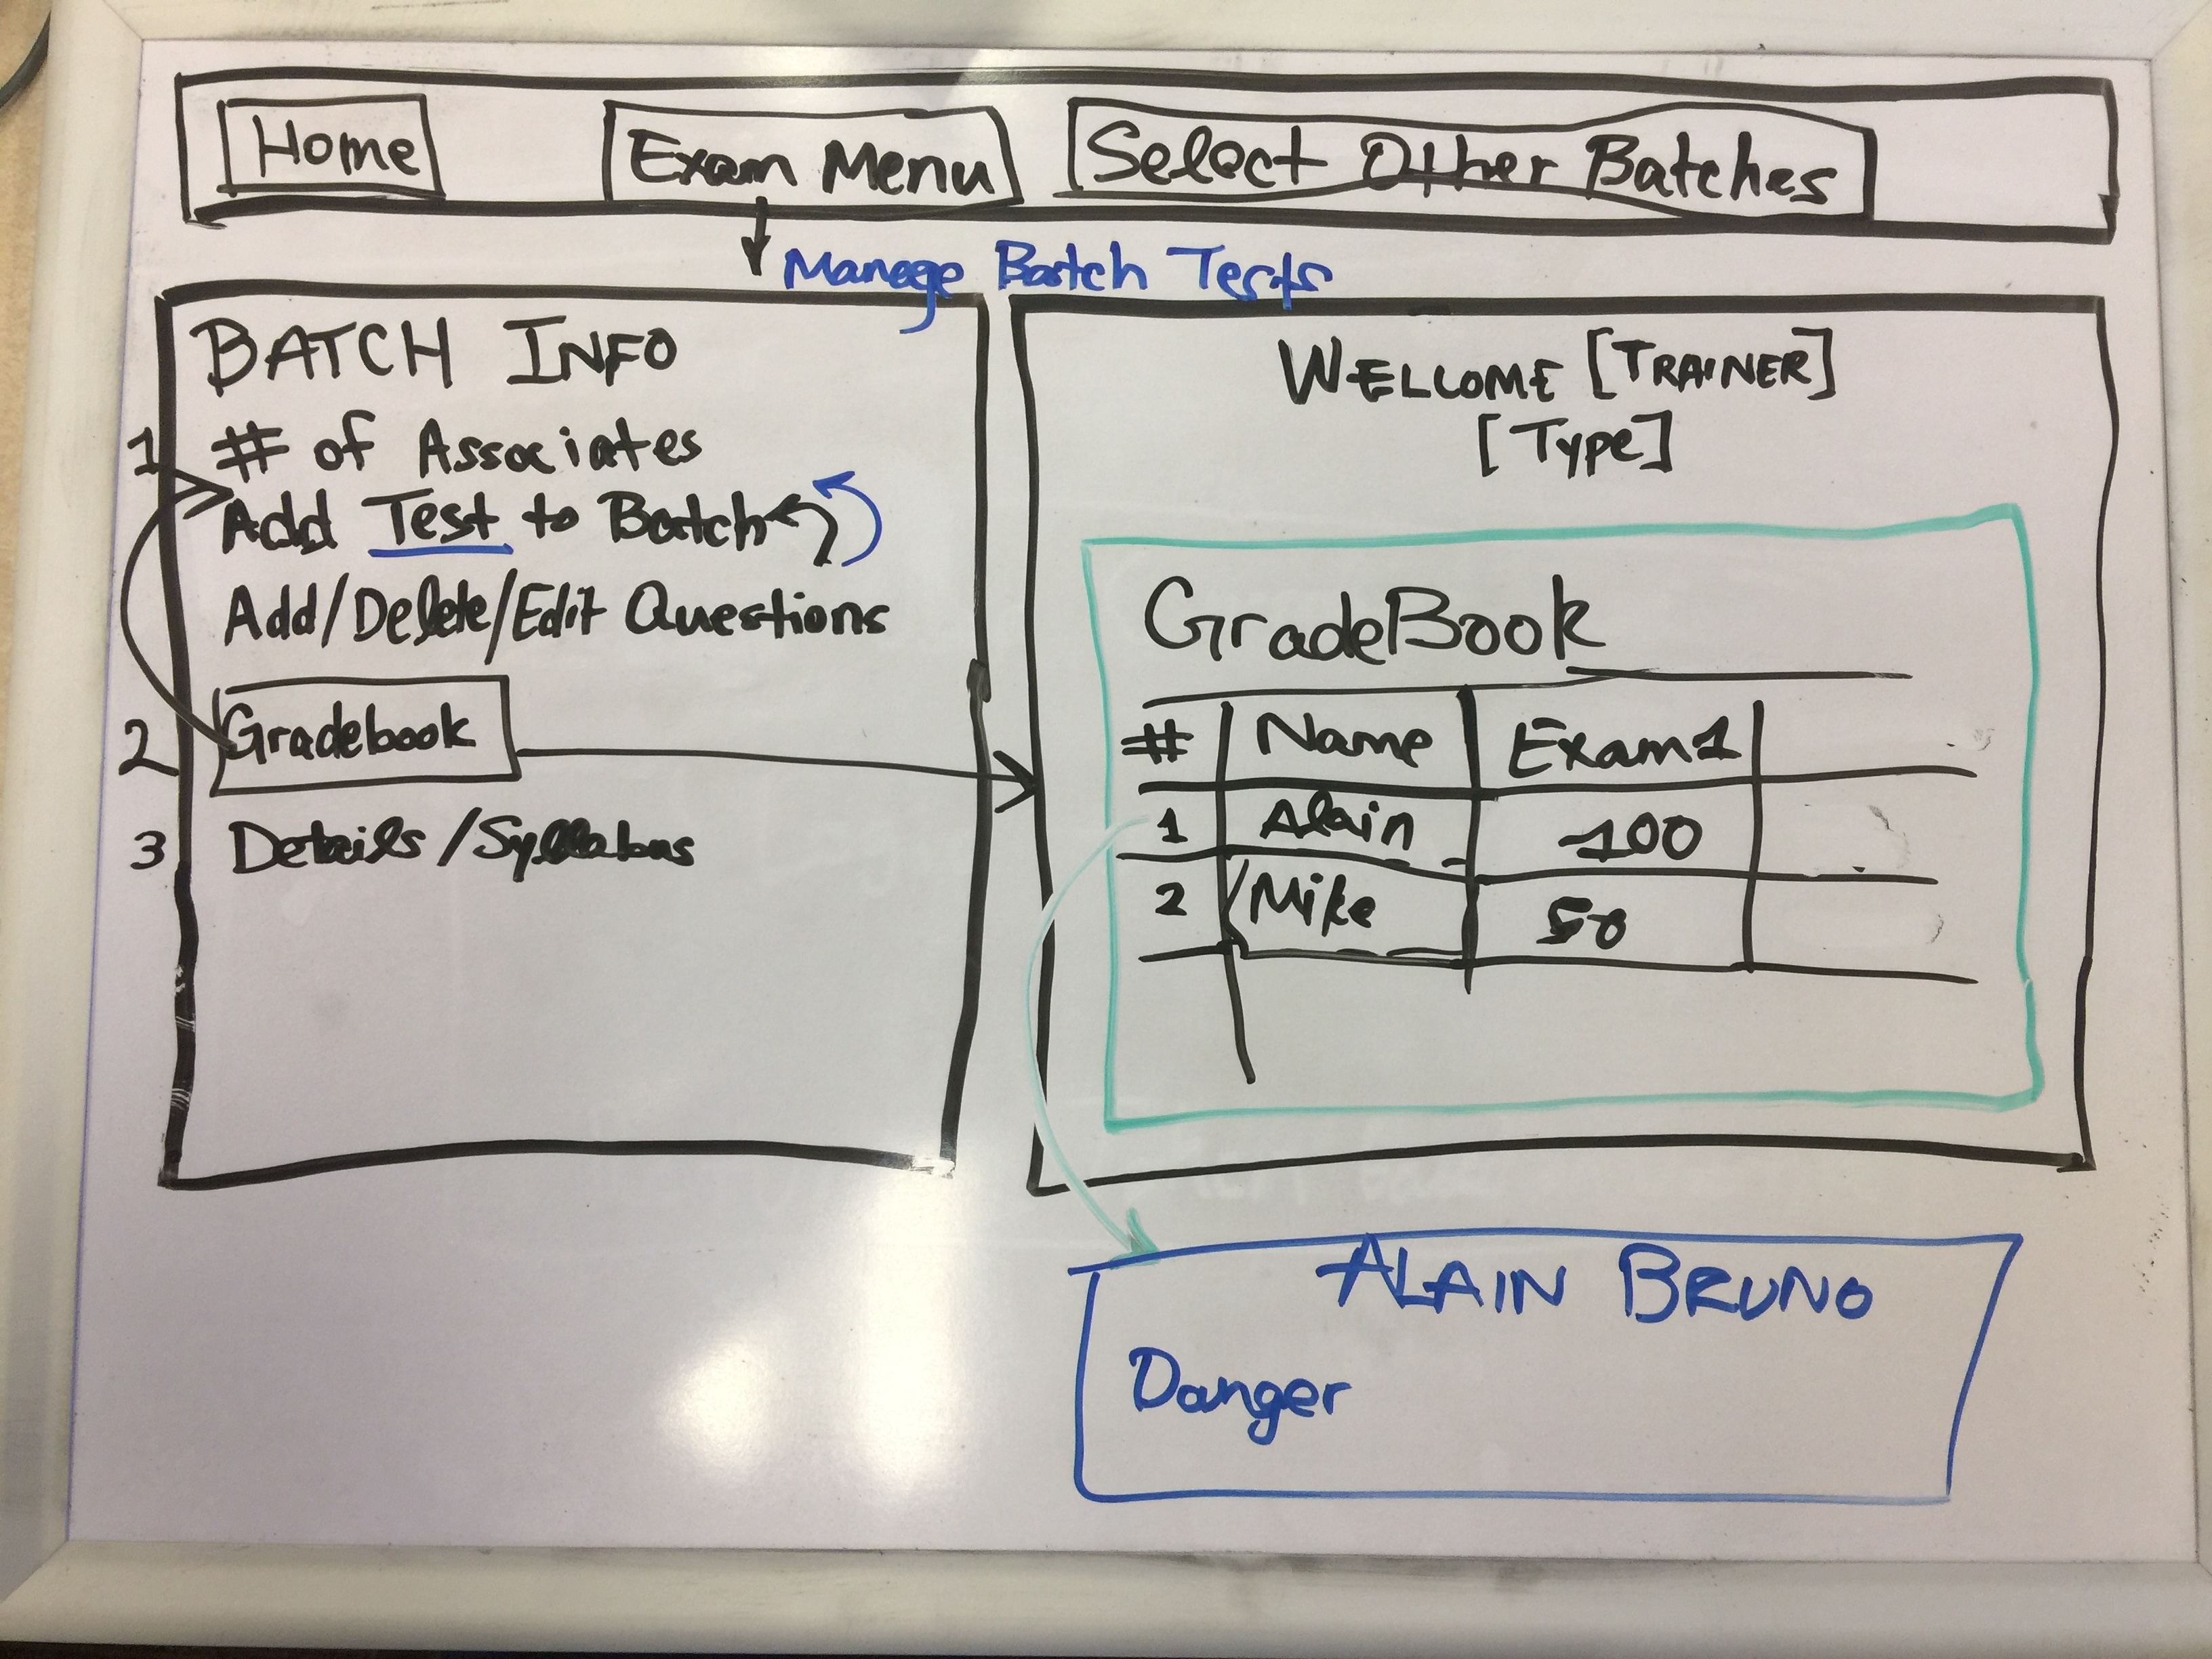 Home Exam Menu Select Other Batches
Manage Batch Tests
BATCH INFO
1 # of Associates
Add Test to Batch
Add/Delete/Edit Questions
2 Gradebook
3 Details/Syllabus
WELCOME [TRAINER]
[Type]
GradeBook
# Name Exam1
1 Alain 100
2 Mike 50
ALAIN BRUNO
Danger